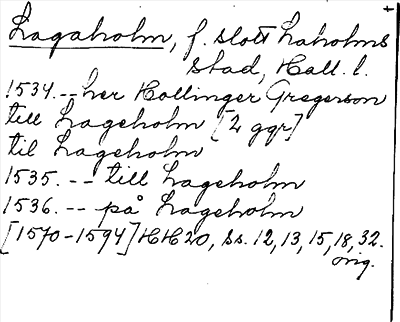 Lagaholm, f. slott Laholms
stad, Hall. l.
1534. -- her Hollinger Gregerson
till Lageholm [2 ggr]
til Lageholm
1535. -- till Lageholm
1536. -- på Lageholm
[1570-1594] HH20, ss. 12, 13, 15, 18, 32.
orig.